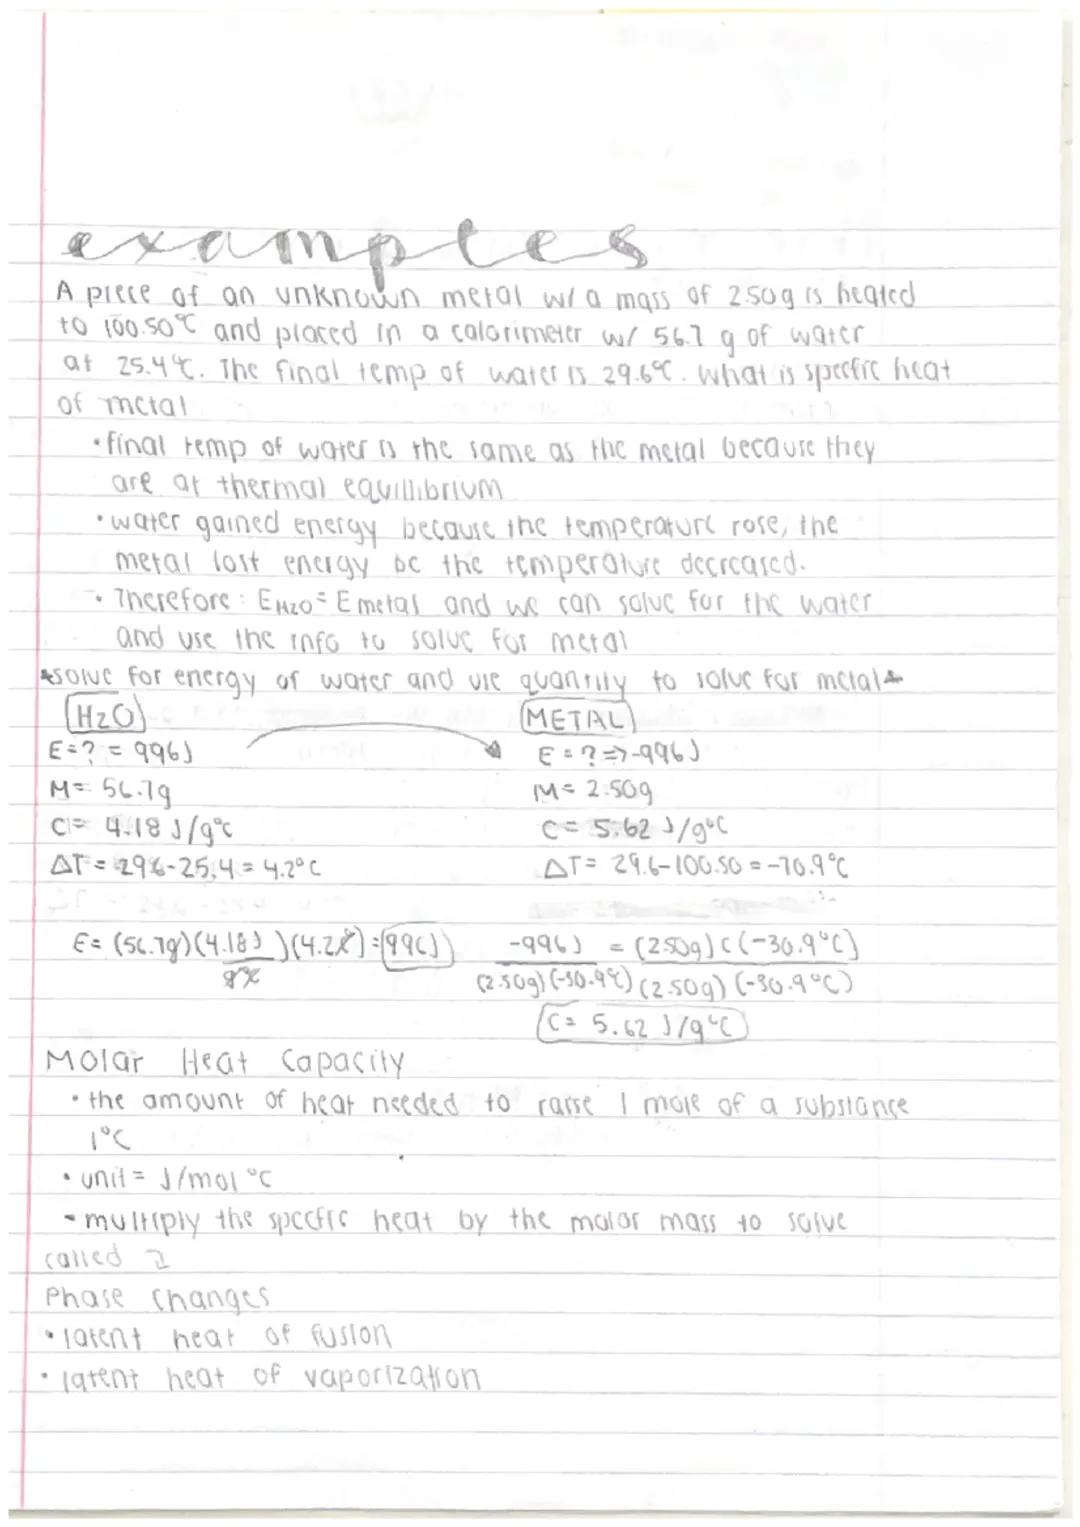 examples
A piece of an unknown metal w/ a mass of 2.50g is heated
to 100.50°C and placed in a calorimeter w/ 56.7 g of water
at 25.4°C. The final temp of water is 29.6°C. What is specific heat
of metal
• final temp of water is the same as the metal because they
are at thermal equillibrium
• water gained energy because the temperature rose, the
metal lost energy bc the temperature decreased.
• Therefore: EH2O = E metal and we can solve for the water
and use the info to solve for metal
*solve for energy of water and use quantity to solve for metal*
H2O METAL
E=? = 996J E = ? => -996J
M= 56.7g M= 2.50g
C= 4.18 J/g°C C= 5.62 J/g°C
ΔT= 29.6-25.4 = 4.2°C ΔT= 29.6-100.50 = -70.9°C
E= (56.7g)(4.18J)(4.2°C) = 996J -996J = (2.50g)C(-30.9°C)
g°C (2.50g)(-30.9°C) (2.50g)(-30.9°C)
C= 5.62 J/g°C
Molar Heat Capacity
• the amount of heat needed to raise 1 mole of a substance
1°C
• unit = J/mol °C
- multiply the specific heat by the molar mass to solve
called
Phase Changes
• latent heat of fusion
• latent heat of vaporization